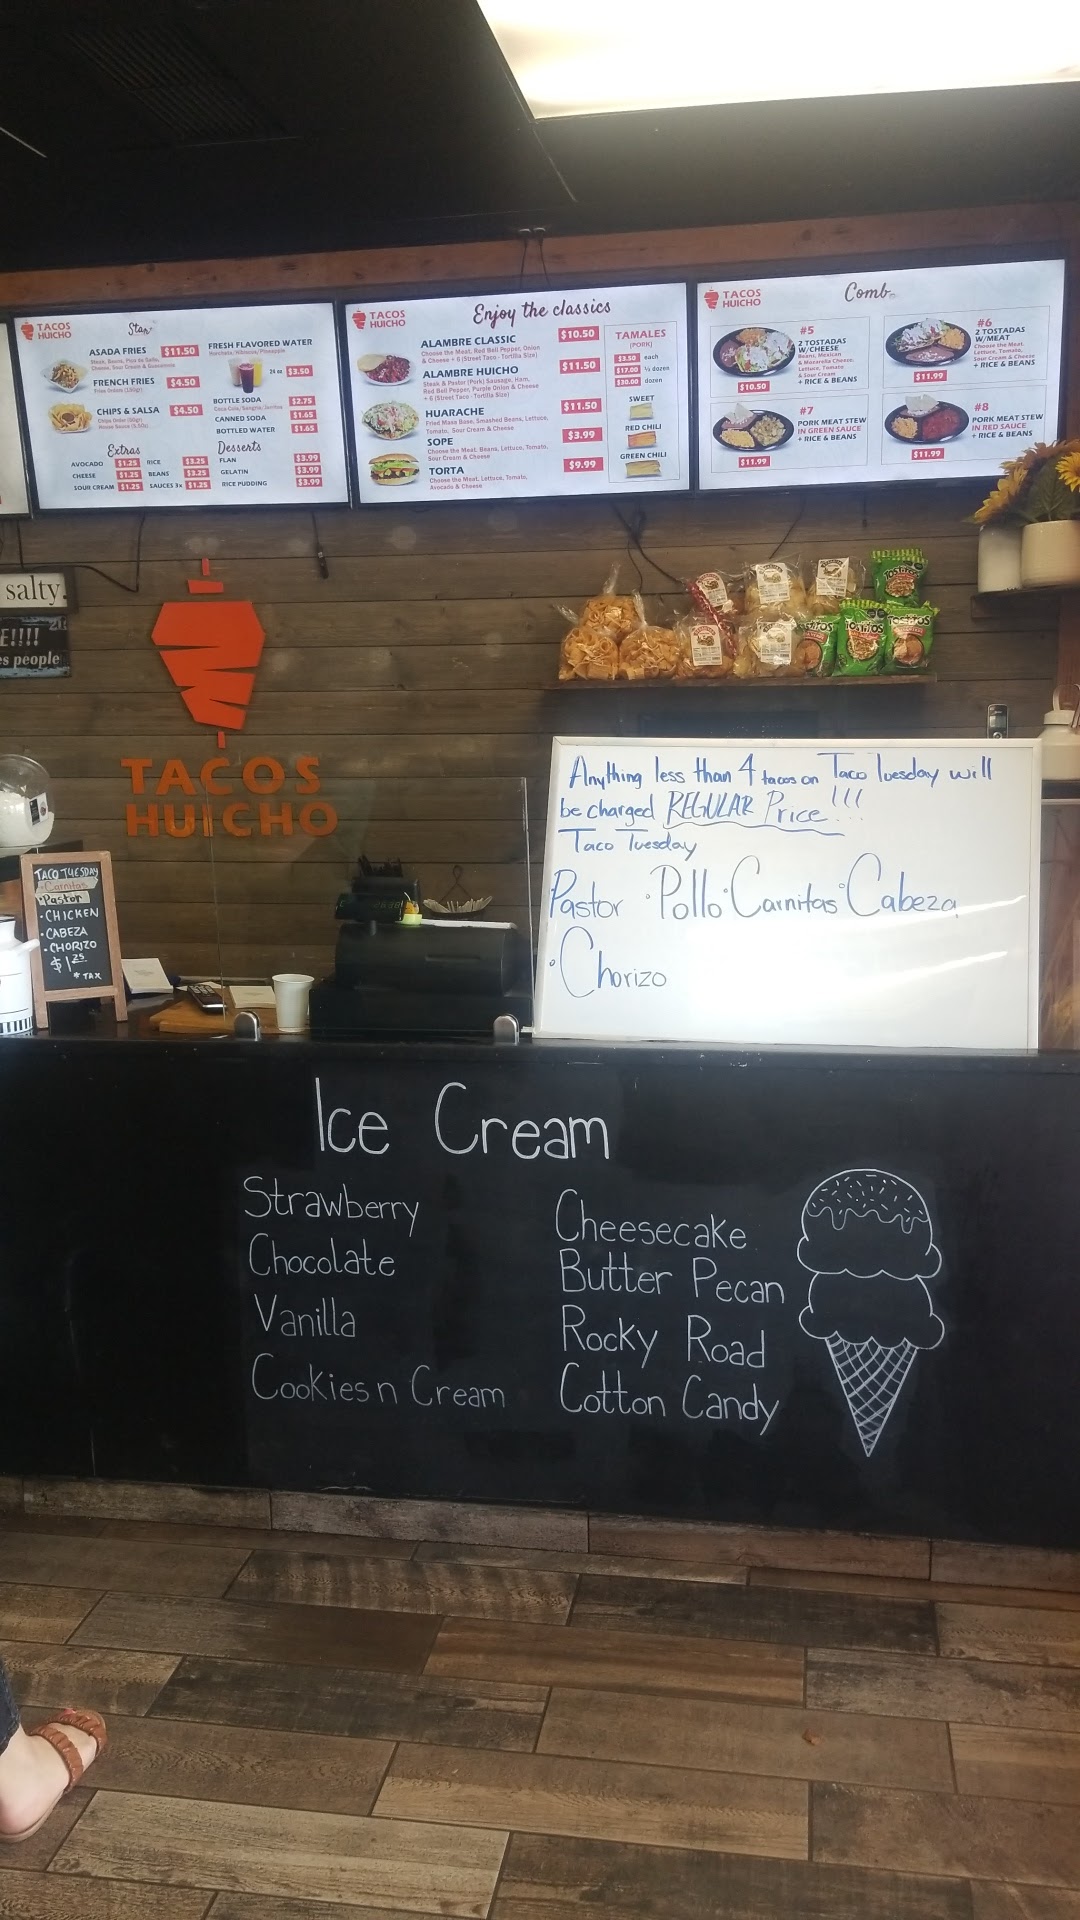 TACOS
HUICHO
ASADA FRIES $11.50
FRENCH FRIES $4.50
CHIPS & SALSA $4.50
Extras
AVOCADO $1.25 RICE $3.25
CHEESE $1.25 BEANS $3.25
SOUR CREAM $1.25 SAUCES 3x $1.25
FRESH FLAVORED WATER
24 oz $3.50
BOTTLE SODA $2.75
CANNED SODA $1.65
BOTTLED WATER $1.65
Desserts
FLAN $3.99
GELATIN $3.99
RICE PUDDING $3.99
TACOS
HUICHO
Enjoy the classics
ALAMBRE CLASSIC $10.50
Choose the Meat, Red Bell Pepper, Onion
& Cheese + 6 (Street Taco - Tortilla Size)
ALAMBRE HUICHO $11.50
Steak & Pastor (Pork) Sausage, Ham,
Red Bell Pepper, Purple Onion & Cheese
+ 6 (Street Taco - Tortilla Size)
HUARACHE $11.50
Fried Masa Base, Smashed Beans, Lettuce,
Tomato, Sour Cream & Cheese
SOPE $3.99
Choose the Meat, Beans, Lettuce, Tomato,
Sour Cream & Cheese
TORTA $9.99
Choose the Meat, Lettuce, Tomato,
Avocado & Cheese
TAMALES
(PORK)
$3.50 each
$17.00 ½ dozen
$30.00 dozen
SWEET
RED CHILI
GREEN CHILI
TACOS
HUICHO
#5
2 TOSTADAS
W/CHEESE
Beans, Mexican
& Mozarella Cheese,
Lettuce, Tomato
& Sour Cream
+ RICE & BEANS
$10.50
#6
2 TOSTADAS
W/MEAT
Choose the Meat,
Lettuce, Tomato,
Sour Cream & Cheese
+ RICE & BEANS
$11.99
#7
PORK MEAT STEW
IN GREEN SAUCE
+ RICE & BEANS
$11.99
#8
PORK MEAT STEW
IN RED SAUCE
+ RICE & BEANS
$11.99
salty.
E!!!!
es people
TOSTITOS
TOSTITOS
TOSTITOS
TACOS
HUICHO
TACO TUESDAY
• Carnitas
• Pastor
• CHICKEN
• CABEZA
• CHORIZO
$1.25
* TAX
Anything less than 4 tacos on Taco Tuesday will
be charged REGULAR Price!!!
Taco Tuesday
Pastor • Pollo • Carnitas • Cabeza
• Chorizo
Ice Cream
Strawberry
Chocolate
Vanilla
Cookies n Cream
Cheesecake
Butter Pecan
Rocky Road
Cotton Candy